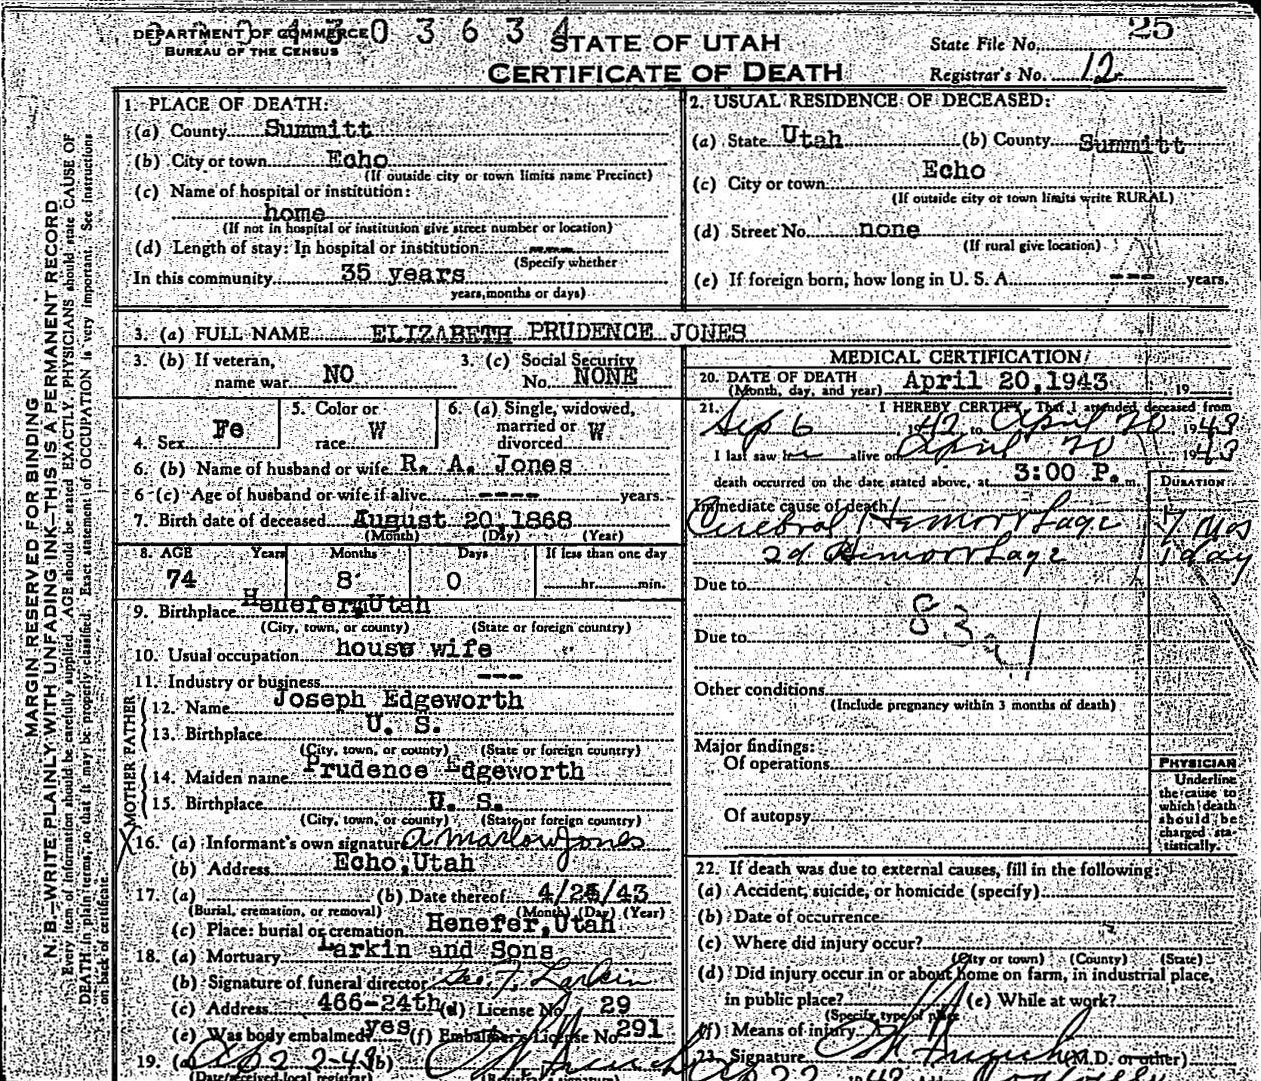 DEPARTMENT OF COMMERCE
BUREAU OF THE CENSUS
3 0 3 6 3 4
STATE OF UTAH
CERTIFICATE OF DEATH
State File No. 25
Registrar's No. 12
MARGIN RESERVED FOR BINDING
N. B.—WRITE PLAINLY WITH UNFADING INK—THIS IS A PERMANENT RECORD
Every item of information should be carefully supplied. AGE should be stated EXACTLY. PHYSICIANS should state CAUSE OF
DEATH in plain terms, so that it may be properly classified. Exact statement of OCCUPATION is very important. See instructions
on back of certificate.
1. PLACE OF DEATH:
(a) County Summitt
(b) City or town Echo
(If outside city or town limits name Precinct)
(c) Name of hospital or institution:
home
(If not in hospital or institution give street number or location)
(d) Length of stay: In hospital or institution ---
(Specify whether
In this community 35 years
years, months or days)
2. USUAL RESIDENCE OF DECEASED:
(a) State Utah (b) County Summitt
(c) City or town Echo
(If outside city or town limits write RURAL)
(d) Street No. none
(If rural give location)
(e) If foreign born, how long in U. S. A. --- years.
3. (a) FULL NAME ELIZABETH PRUDENCE JONES
3. (b) If veteran, name war NO
3. (c) Social Security No. NONE
4. Sex Fe
5. Color or race W
6. (a) Single, widowed, married or divorced W
6. (b) Name of husband or wife R. A. Jones
6 (c) Age of husband or wife if alive ---- years.
7. Birth date of deceased August 20, 1868
(Month) (Day) (Year)
8. AGE Years Months Days If less than one day
74 8 0 hr. min.
9. Birthplace Henefer, Utah
(City, town, or county) (State or foreign country)
10. Usual occupation house wife
11. Industry or business ---
FATHER
12. Name Joseph Edgeworth
13. Birthplace U. S.
(City, town, or county) (State or foreign country)
MOTHER
14. Maiden name Prudence Edgeworth
15. Birthplace U. S.
(City, town, or county) (State or foreign country)
X 16. (a) Informant's own signature A Marlow Jones
(b) Address Echo, Utah
17. (a) (b) Date thereof 4/ /43
(Burial, cremation, or removal) (Month) (Day) (Year)
(c) Place: burial or cremation Henefer, Utah
18. (a) Mortuary Larkin and Sons
(b) Signature of funeral director Larkin
(c) Address 466-24th (d) License No. 29
(e) Was body embalmed? yes (f) Embalmer's License No. 291
19. (a) (b)
(Date received local registrar) (Registrar's signature)
MEDICAL CERTIFICATION
20. DATE OF DEATH April 20, 1943
(Month, day, and year) , 19
21. I HEREBY CERTIFY, That I attended deceased from
Sep 6 1942 to April 20 1943
I last saw her alive on April 20 1943
death occurred on the date stated above, at 3:00 P. m.
DURATION
Immediate cause of death
Cerebral Hemorrhage
2d Hemorrhage 1 day
Due to
83a1
Due to
Other conditions
(Include pregnancy within 3 months of death)
Major findings:
Of operations
Of autopsy
PHYSICIAN
Underline
the cause to
which death
should be
charged sta-
tistically.
22. If death was due to external causes, fill in the following:
(a) Accident, suicide, or homicide (specify)
(b) Date of occurrence
(c) Where did injury occur?
(City or town) (County) (State)
(d) Did injury occur in or about home on farm, in industrial place,
in public place? (e) While at work?
(Specify type of place)
(f) Means of injury
23. Signature (M.D. or other)